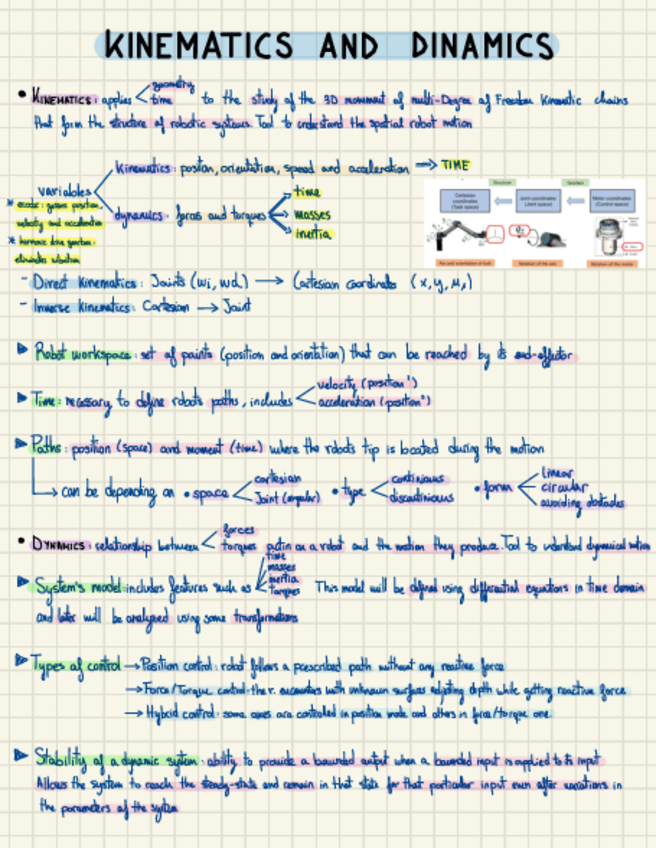 KINEMATICS AND DINAMICS
• KINEMATICS: applies geometry
time to the study of the 3D movement of multi-Degree of Freedom Kinematic chains
that form the structure of robotic systems. Tool to understand the spatial robot motion
variables
Kinematics: position, orientation, speed and acceleration ⟹ TIME
dynamics: forces and torques
time
masses
inertia
velocity and acceleration
Cartesian coordinates (Task space)
Joint coordinates (Joint space)
Motor coordinates
- Direct Kinematics: Joints ⟶ Cartesian coordinates
- Inverse Kinematics: Cartesian ⟶ Joint
Robot workspace: set of points (position and orientation) that can be reached by its end-effector
Time: necessary to define robots paths, includes
velocity (position')
acceleration (position'')
Paths: position (space) and moment (time) where the robots tip is located during the motion
can be depending on
• space
cartesian
Joint (angular)
• type
continuous
discontinuous
• form
linear
circular
avoiding obstacles
• DYNAMICS: relationship between forces
torques actin on a robot and the motion they produce. Tool to understand dynamical motion
System's model: includes features such as
time
masses
inertia
torques
This model will be defined using differential equations in time domain
and later will be analyzed using some transformations
Types of control → Position control: robot follows a prescribed path without any reactive force
→ Force/Torque control: the r. encounters with unknown surfaces adjusting depth while getting reactive force
→ Hybrid control: some axes are controlled in position mode and others in force/torque one.
Stability of a dynamic system: ability to provide a bounded output when a bounded input is applied to its input
Allows the system to reach the steady-state and remain in that state for that particular input even after variations in
the parameters of the system